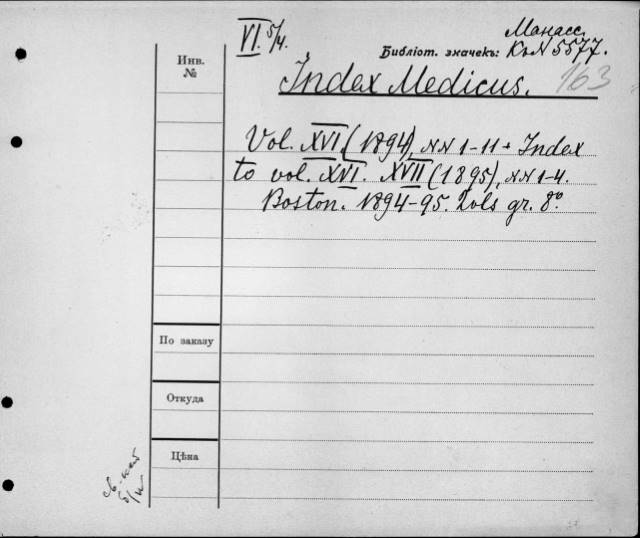 VI. 5/4.
Манасс.
Библіот. значекъ: К.№ 5577.
Инв.
№
Index Medicus. 163
Vol. XVI. (1894), NN 1-11 + Index
to vol. XVI. XVII (1895), NN 1-4.
Boston. 1894-95. 2 vols gr. 8°.
По заказу
Откуда
Цѣна